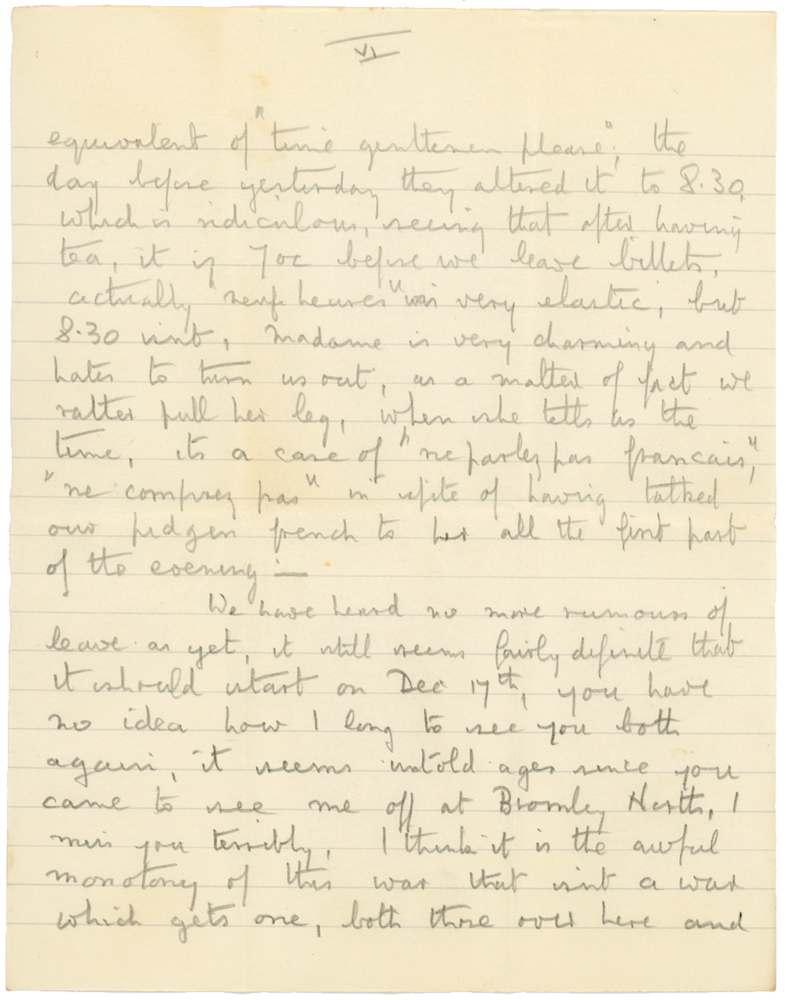 VI
equivalent of "time gentlemen please", the
day before yesterday they altered it to 8.30,
which is ridiculous, seeing that after having
tea, it is 7 oc before we leave billets,
actually "neuf heures" was very elastic, but
8.30 isnt, Madame is very charming and
hates to turn us out, as a matter of fact we
rather pull her leg, when she tells us the
time, its a case of "ne parlez pas francais",
"ne comprez pas" in spite of having talked
our pidgen french to her all the first part
of the evening —
We have heard no more rumours of
leave as yet, it still seems fairly definite that
it should start on Dec 17th, you have
no idea how I long to see you both
again, it seems untold ages since you
came to see me off at Bromley North, I
miss you terribly, I think it is the awful
monotony of this war that isnt a war
which gets one, both those over here and